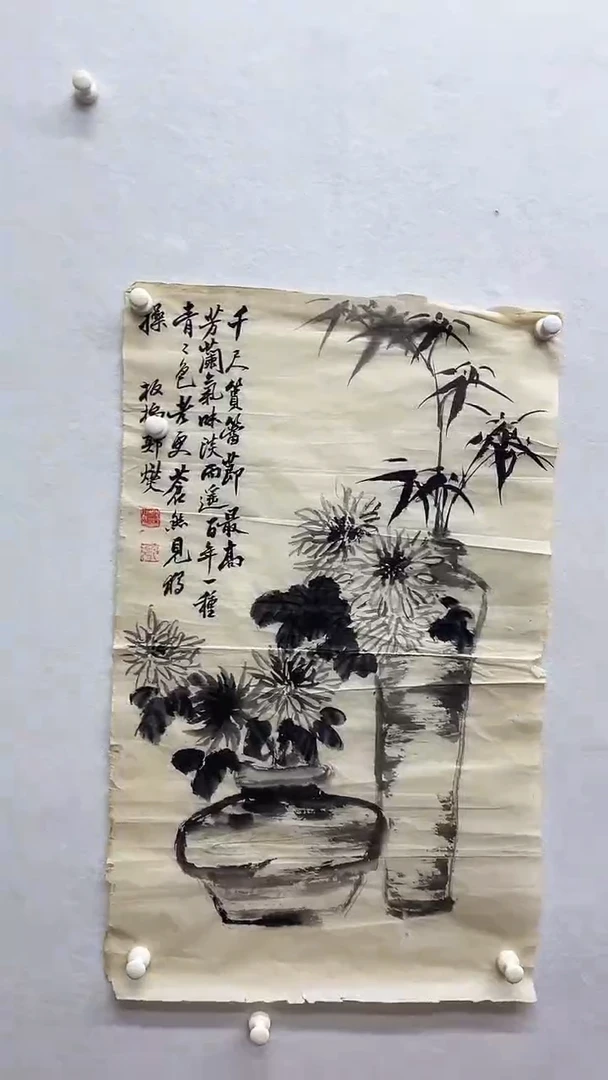 千尺篔簹節最高
芳蘭氣味淡而遙百年一種
青〻色老更蒼然見
操 板橋鄭燮